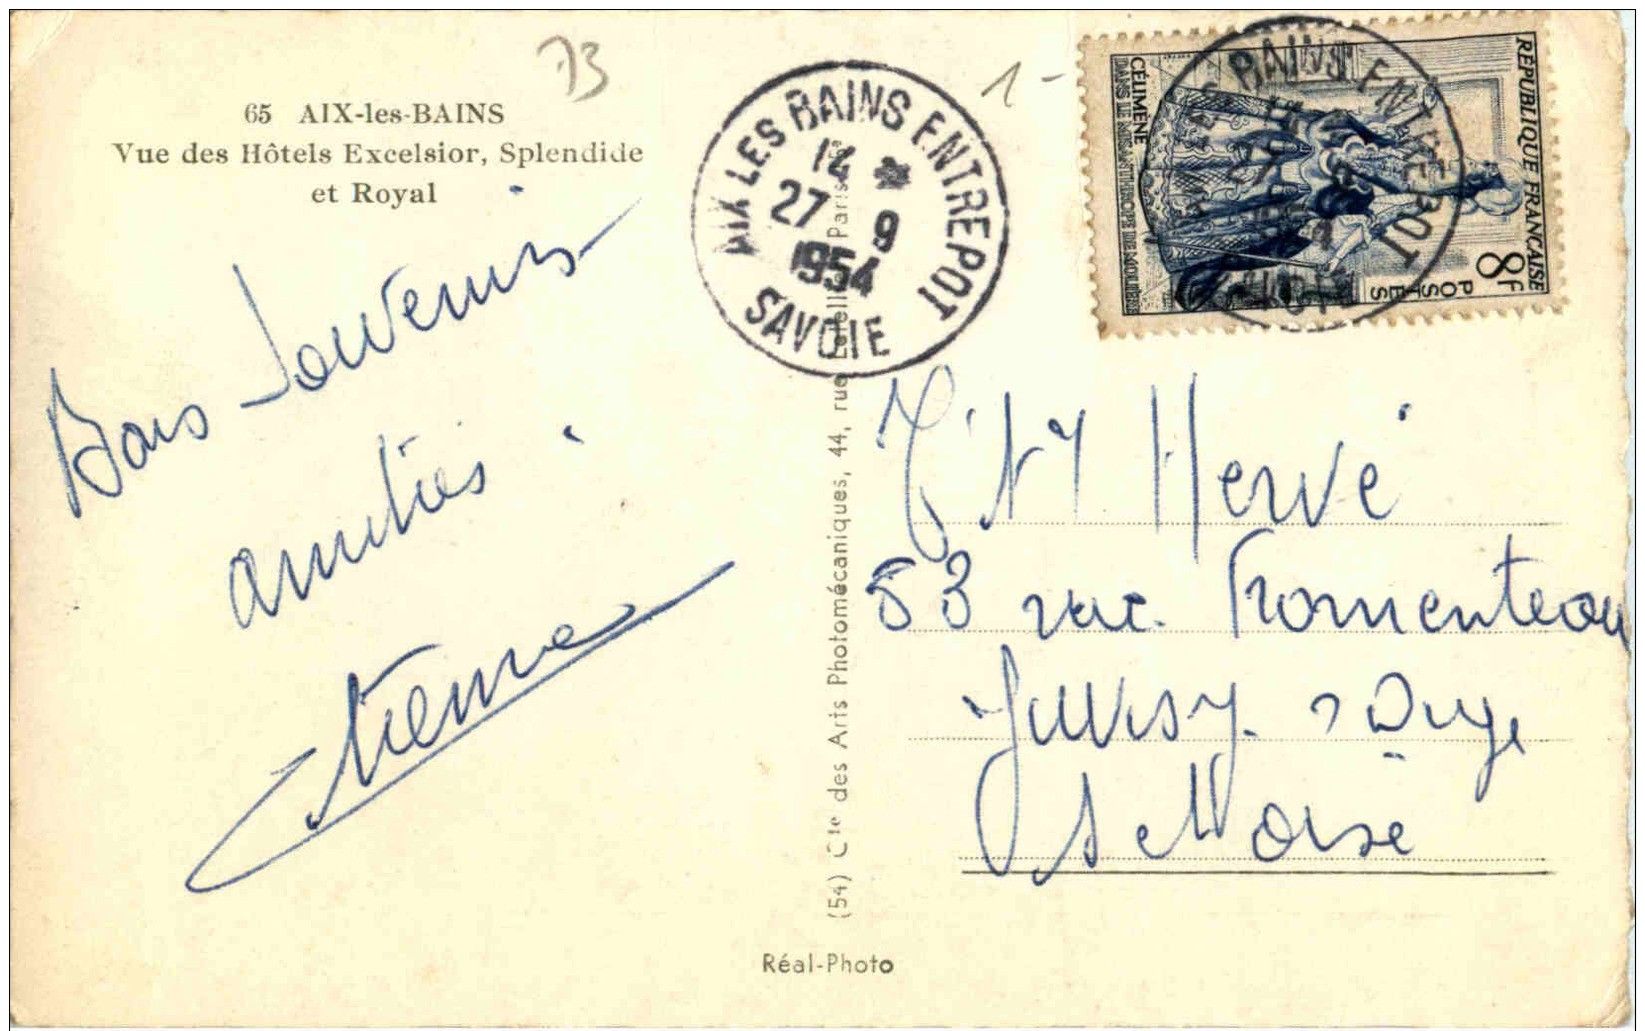 73
65 AIX-les-BAINS
Vue des Hôtels Excelsior, Splendide
et Royal
Bons Souvenirs
amitiés
Etienne
AIX LES BAINS ENTREPOT
14 *
27 9
1954
SAVOIE
1-
RÉPUBLIQUE FRANÇAISE
8F
POSTES
CÉLIMÈNE
DANS LE MISANTHROPE DE MOLIÈRE
BAINS ENTREPOT
27
Hervé
53 rue Fromenteau
Juvisy s Orge
S et Oise
(54) Cie des Arts Photomécaniques, 44, rue Letellier Paris
Réal-Photo